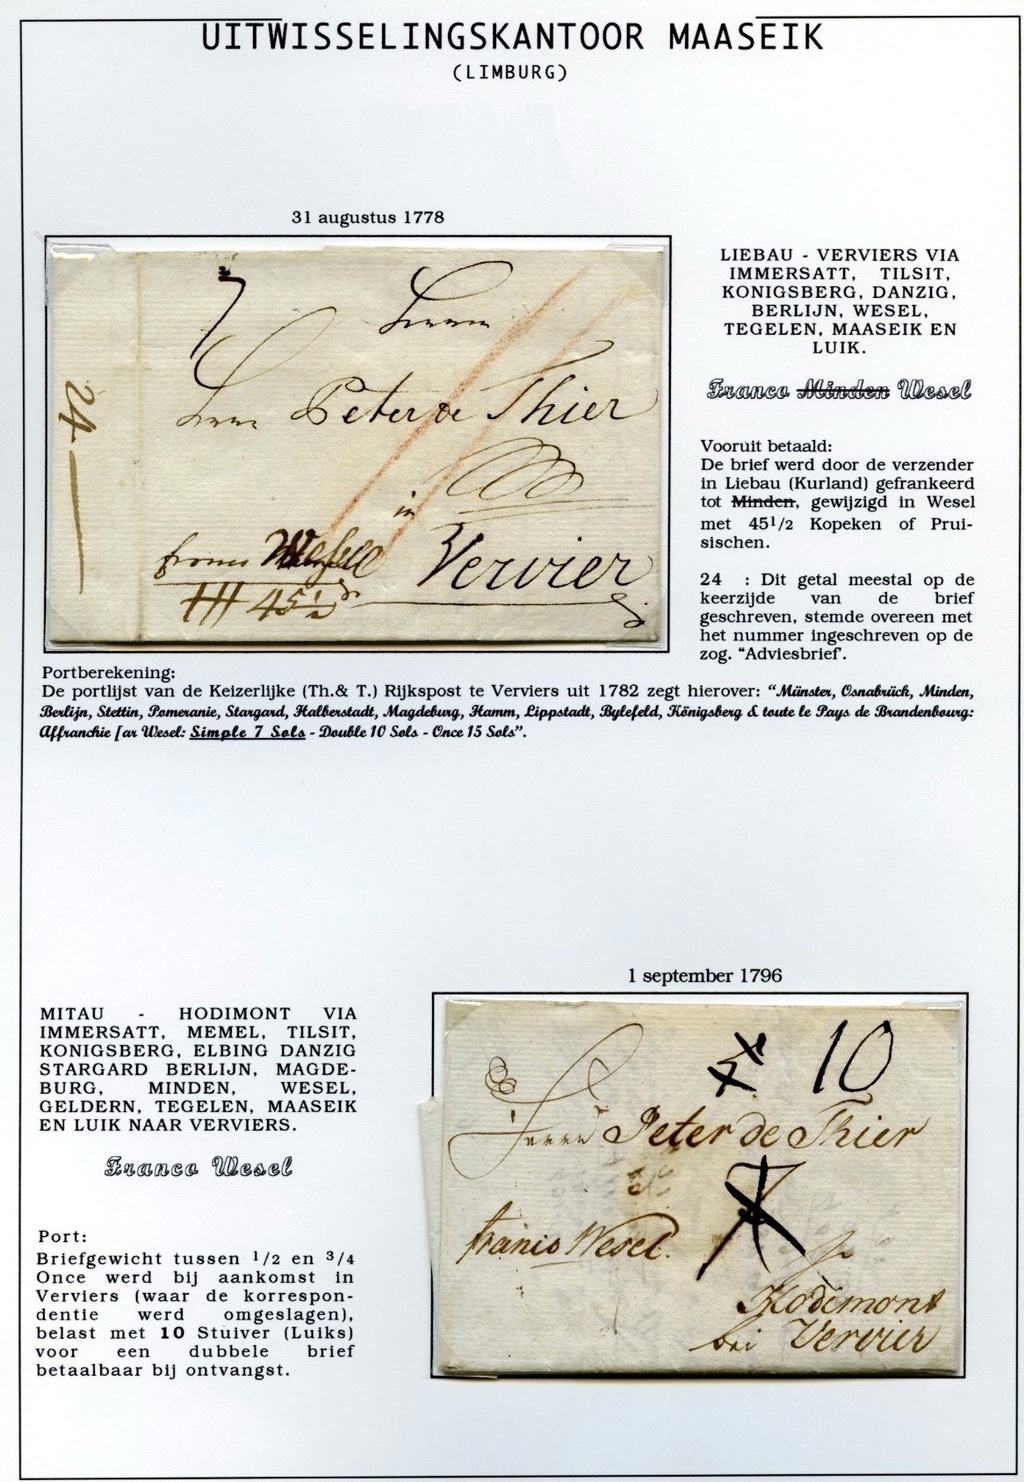 UITWISSELINGSKANTOOR MAASEIK
(LIMBURG)
31 augustus 1778
7
Herrn
Herrn Peter de Thier
in
Vervier
franco Wesel
45½
24
LIEBAU - VERVIERS VIA
IMMERSATT, TILSIT,
KONIGSBERG, DANZIG,
BERLIJN, WESEL,
TEGELEN, MAASEIK EN
LUIK.
Franco Minden Wesel
Vooruit betaald:
De brief werd door de verzender
in Liebau (Kurland) gefrankeerd
tot Minden, gewijzigd in Wesel
met 45½ Kopeken of Prui-
sischen.
24 : Dit getal meestal op de
keerzijde van de brief
geschreven, stemde overeen met
het nummer ingeschreven op de
zog. "Adviesbrief'.
Portberekening:
De portlijst van de Keizerlijke (Th.& T.) Rijkspost te Verviers uit 1782 zegt hierover: "Münster, Osnabrück, Minden,
Berlijn, Stettin, Pomeranie, Stargard, Halberstadt, Magdeburg, Hamm, Lippstadt, Bylefeld, Königsberg & toute le Pays de Brandenbourg:
Affranchie [ar Wesel: Simple 7 Sols - Double 10 Sols - Once 15 Sols".
1 september 1796
MITAU - HODIMONT VIA
IMMERSATT, MEMEL, TILSIT,
KONIGSBERG, ELBING DANZIG
STARGARD BERLIJN, MAGDE-
BURG, MINDEN, WESEL,
GELDERN, TEGELEN, MAASEIK
EN LUIK NAAR VERVIERS.
Franco Wesel
Port:
Briefgewicht tussen ½ en ¾
Once werd bij aankomst in
Verviers (waar de korrespon-
dentie werd omgeslagen),
belast met 10 Stuiver (Luiks)
voor een dubbele brief
betaalbaar bij ontvangst.
10
Herrn Peter de Thier
7
franco Wesel.
Hodimont
bei Vervier